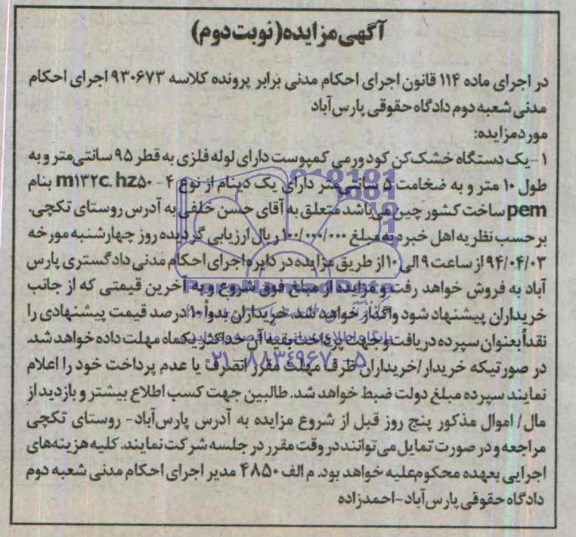 آگهی مزایده (نوبت دوم)
در اجرای ماده ۱۱۴ قانون اجرای احکام مدنی برابر پرونده کلاسه ۹۳۰۶۷۳ اجرای احکام
مدنی شعبه دوم دادگاه حقوقی پارس‌آباد
مورد مزایده:
۱- یک دستگاه خشک‌کن کود ورمی کمپوست دارای لوله فلزی به قطر ۹۵ سانتی‌متر و به
طول ۱۰ متر و به ضخامت ۵ سانتی‌متر دارای یک دینام از نوع m۱۳۲c. hz۵۰ - ۴ بنام
pem ساخت کشور چین می‌باشد متعلق به آقای حسن خلفی به آدرس روستای تکچی.
برحسب نظریه اهل خبره به مبلغ ۱۰۰/۰۰۰/۰۰۰ ریال ارزیابی گردیده روز چهارشنبه مورخه
۹۴/۰۴/۰۳ از ساعت ۹ الی ۱۰ از طریق مزایده در دایره اجرای احکام مدنی دادگستری پارس
آباد به فروش خواهد رفت و مزایده از مبلغ فوق شروع و به آخرین قیمتی که از جانب
خریداران پیشنهاد شود واگذار خواهد شد. خریداران بدواً ۱۰ درصد قیمت پیشنهادی را
نقداً بعنوان سپرده دریافت و جهت پرداخت بقیه آن حداکثر یکماه مهلت داده خواهد شد.
در صورتیکه خریدار/خریداران ظرف مهلت مقرر انصراف یا عدم پرداخت خود را اعلام
نمایند سپرده مبلغ دولت ضبط خواهد شد. طالبین جهت کسب اطلاع بیشتر و بازدید از
مال/ اموال مذکور پنج روز قبل از شروع مزایده به آدرس پارس‌آباد- روستای تکچی
مراجعه و در صورت تمایل می‌توانند در وقت مقرر در جلسه شرکت نمایند. کلیه هزینه‌های
اجرایی بعهده محکوم‌علیه خواهد بود. م الف ۴۸۵۰ مدیر اجرای احکام مدنی شعبه دوم
دادگاه حقوقی پارس‌آباد-احمدزاده
۰۲۱-۸۸۳۴۹۶۷۰-۵